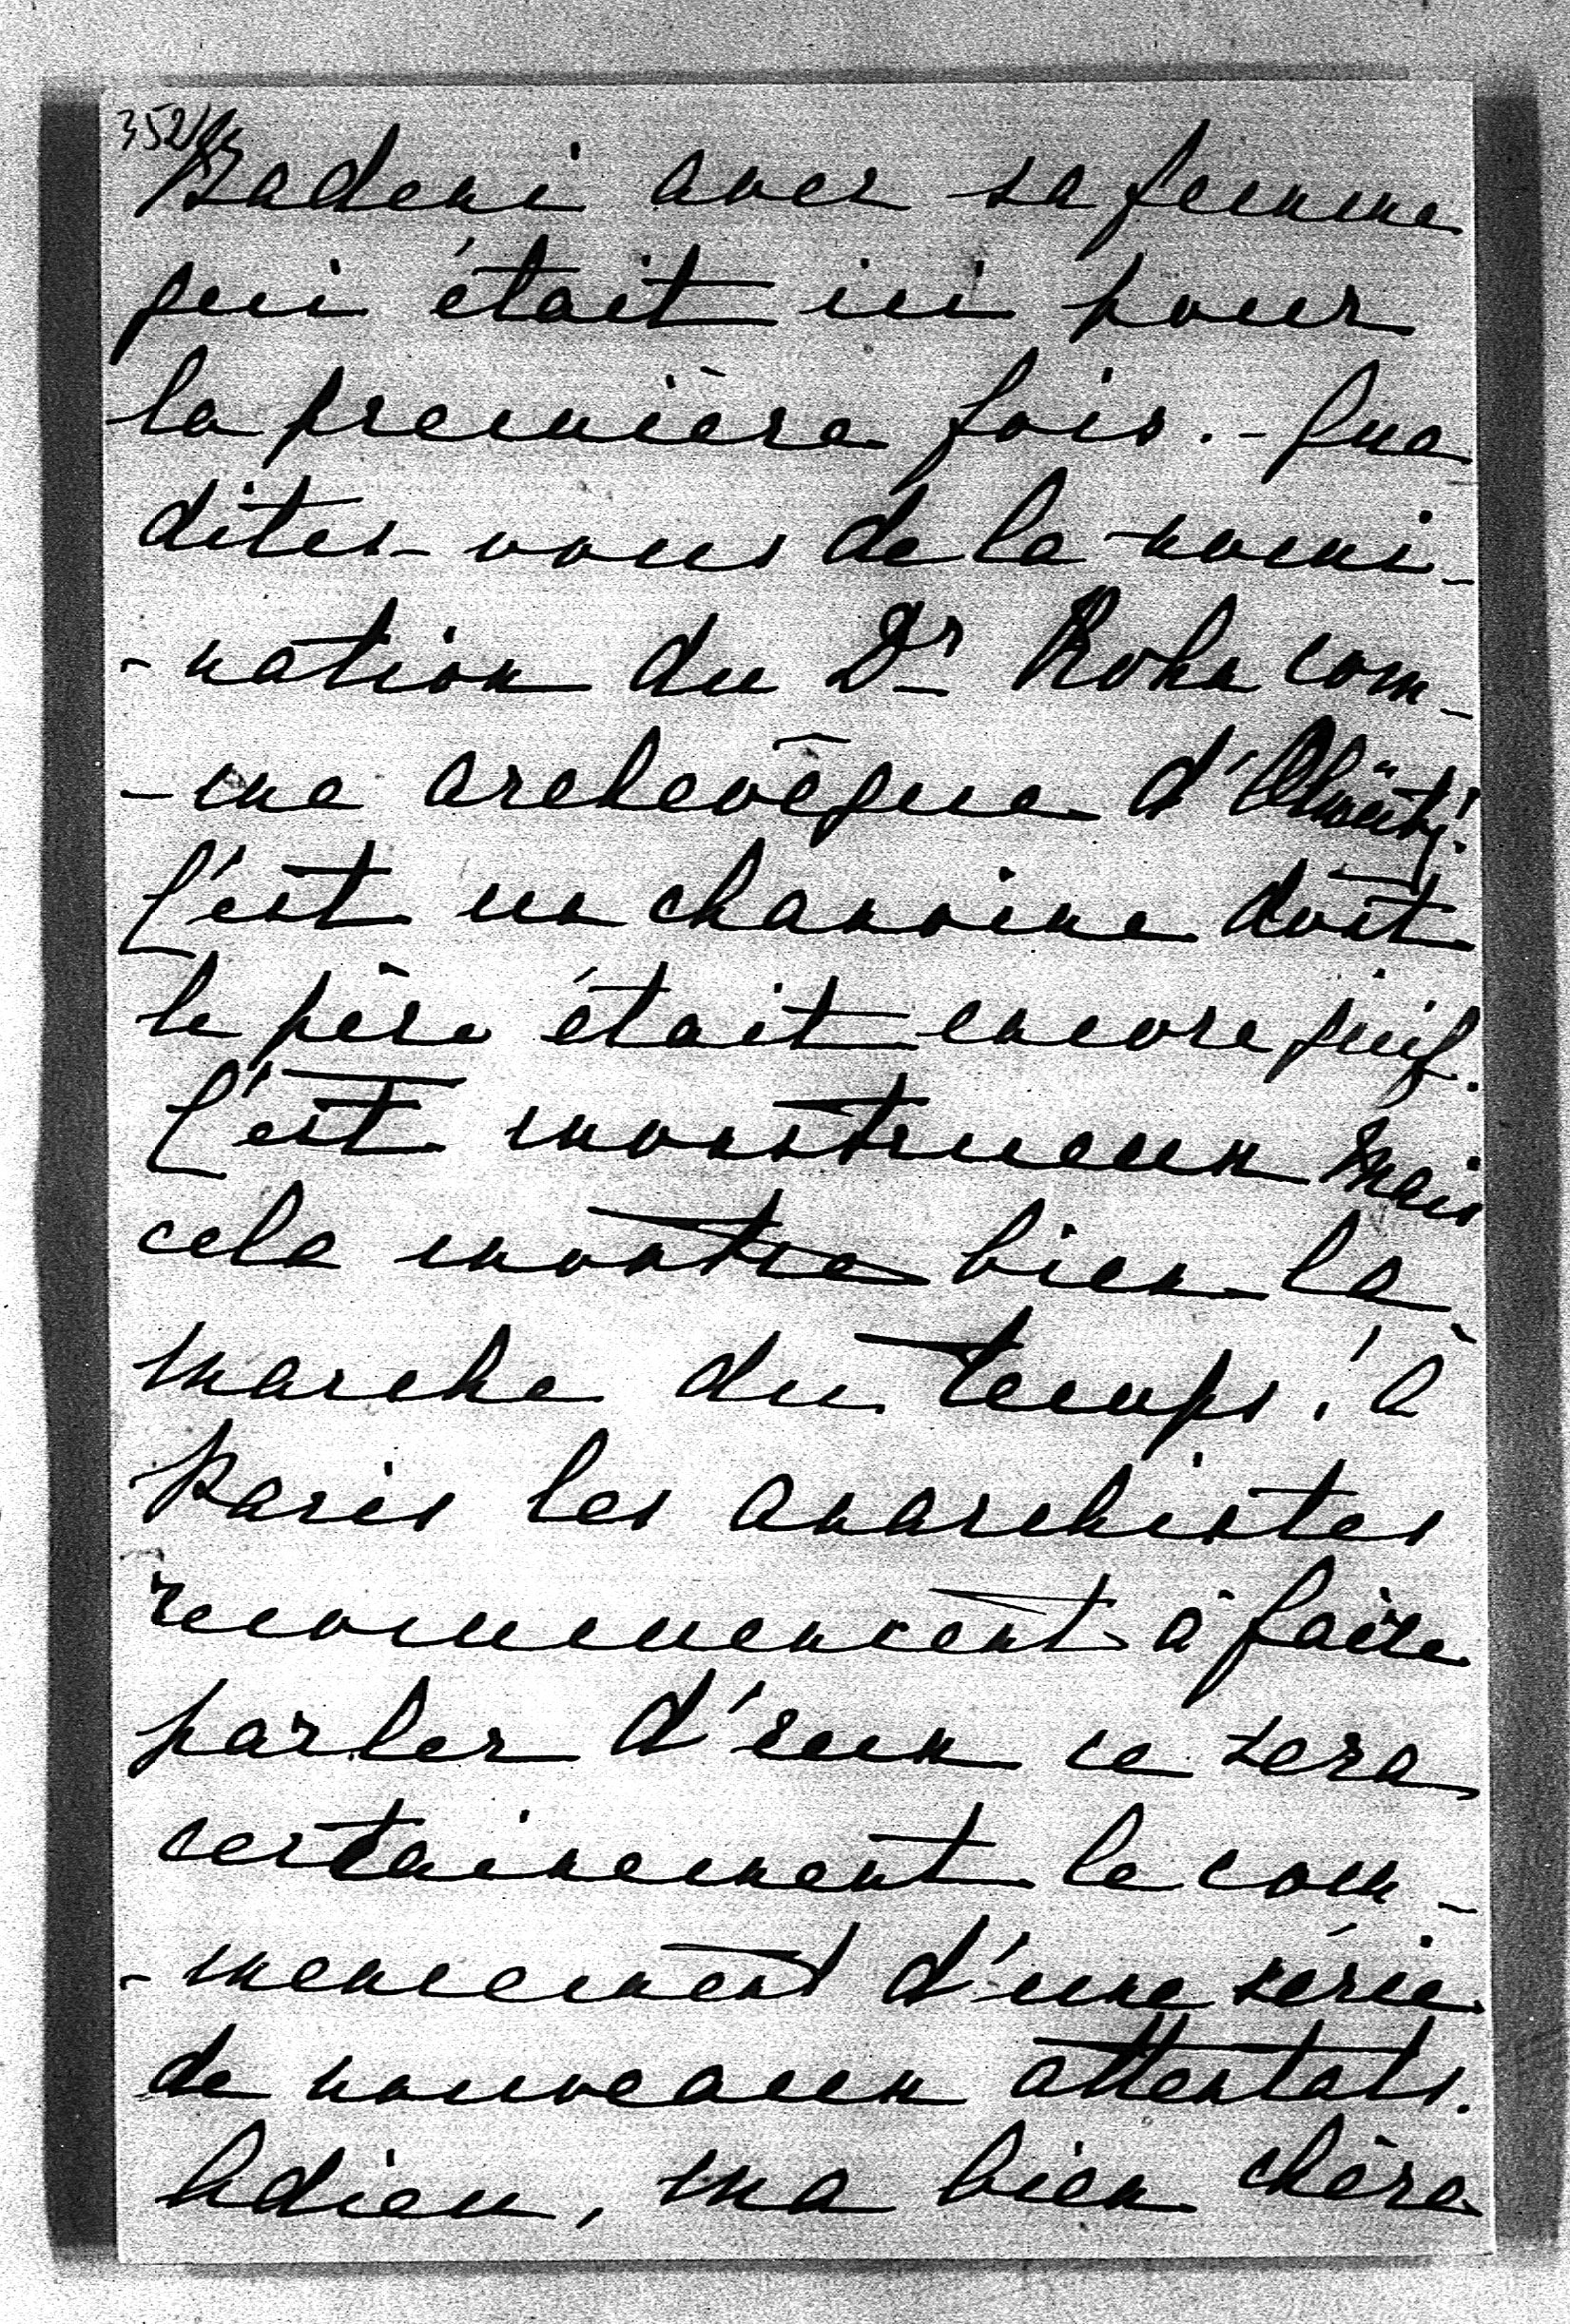 Badeni avec sa femme
qui était ici pour
la première fois. - Que
dites-vous de la nomi-
-nation du Dr Kohn com-
-me archevêque d'Olmütz!
C'est un chanoine dont
le père était encore juif.
C'est monstrueux mais
cela montre bien la
marche du temps! à
Paris les anarchistes
recommencent à faire
parler d'eux ce sera
certainement le com-
-mencement d'une série
de nouveaux attentats.
Adieu, ma bien chère